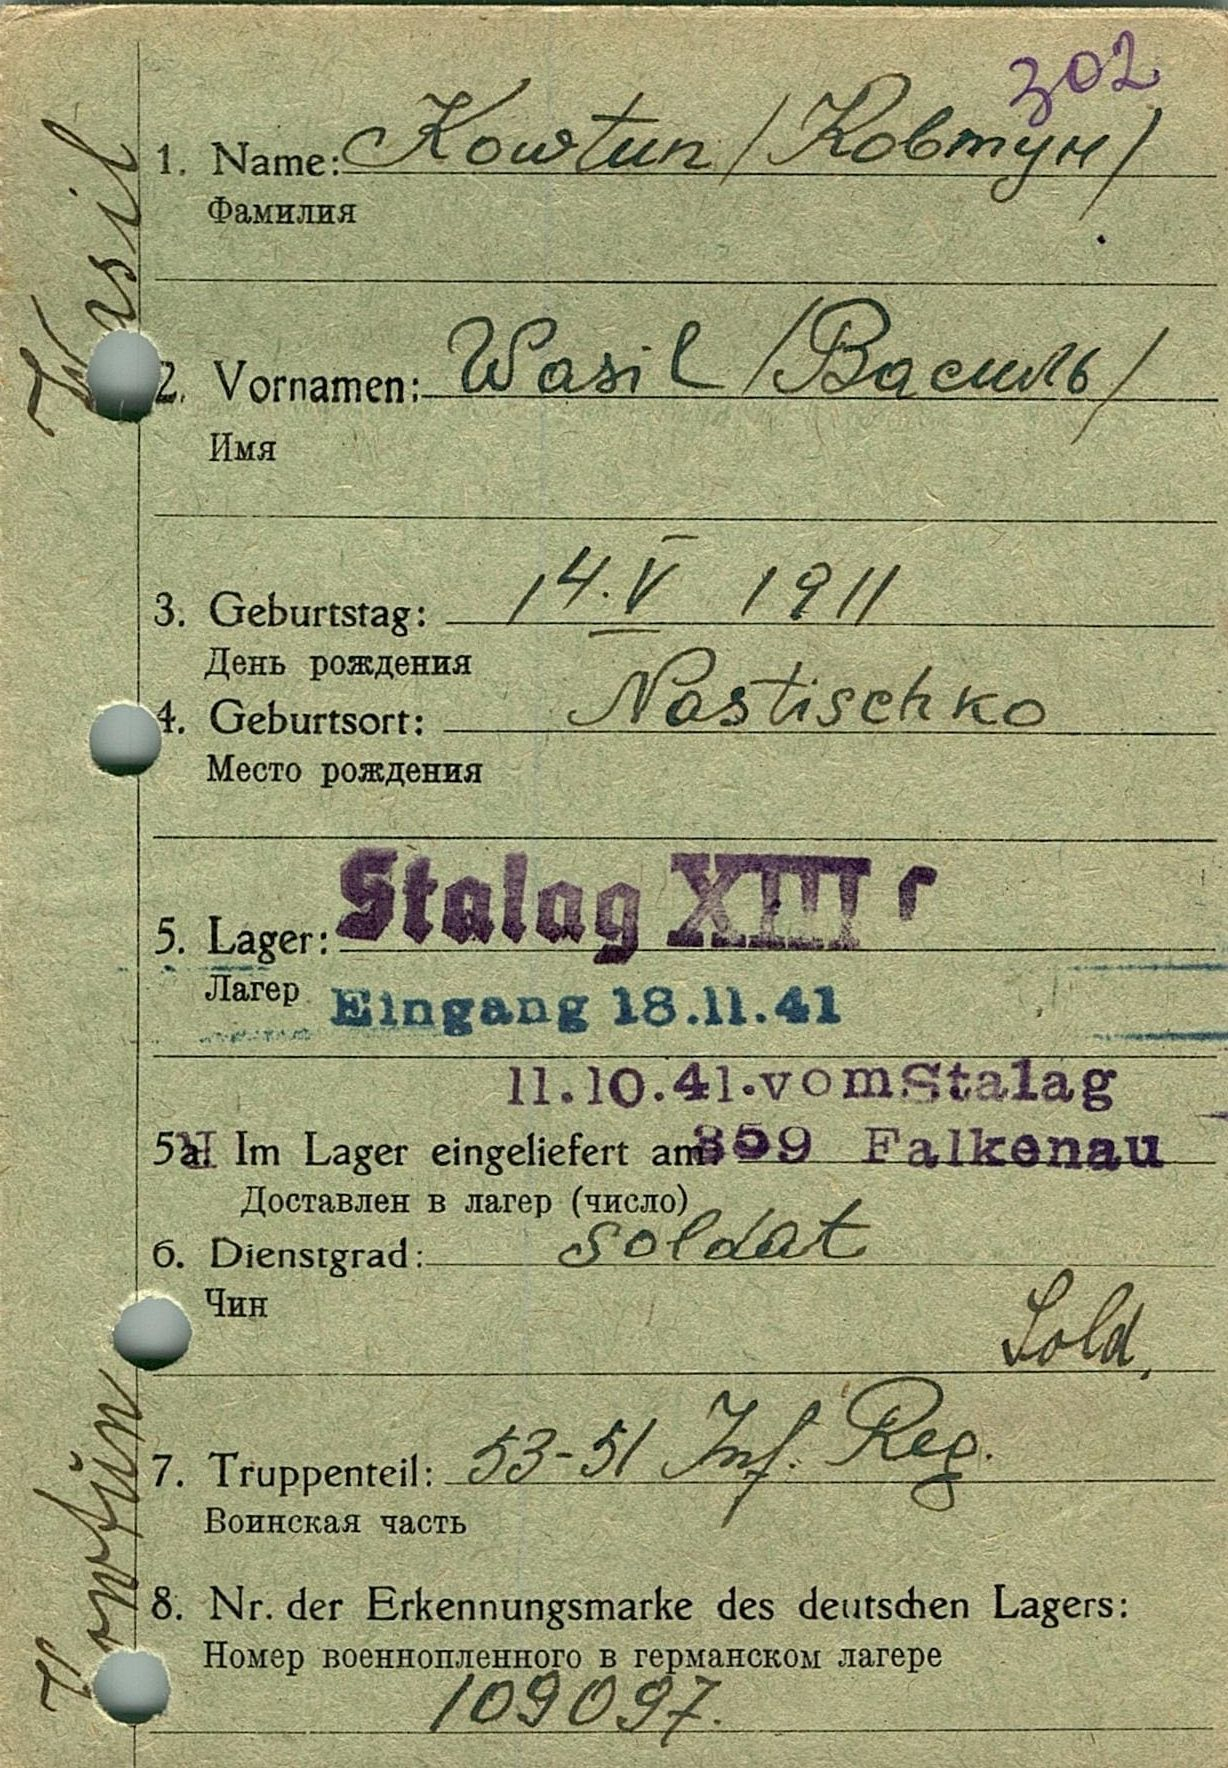 302
1. Name: Kowtun /Ковтун/
Фамилия
Wasil
2. Vornamen: Wasil /Василь/
Имя
3. Geburtstag: 14.V 1911
День рождения
4. Geburtsort: Nastischko
Место рождения
Stalag XIII
5. Lager:
Лагер
Eingang 18.11.41
11.10.41.vom Stalag
5a. Im Lager eingeliefert am: 359 Falkenau
Доставлен в лагер (число)
6. Dienstgrad: soldat
Чин
Sold.
7. Truppenteil: 53-51 Inf. Reg.
Воинская часть
Kowtun
8. Nr. der Erkennungsmarke des deutschen Lagers:
Номер военнопленного в германском лагере
109097.